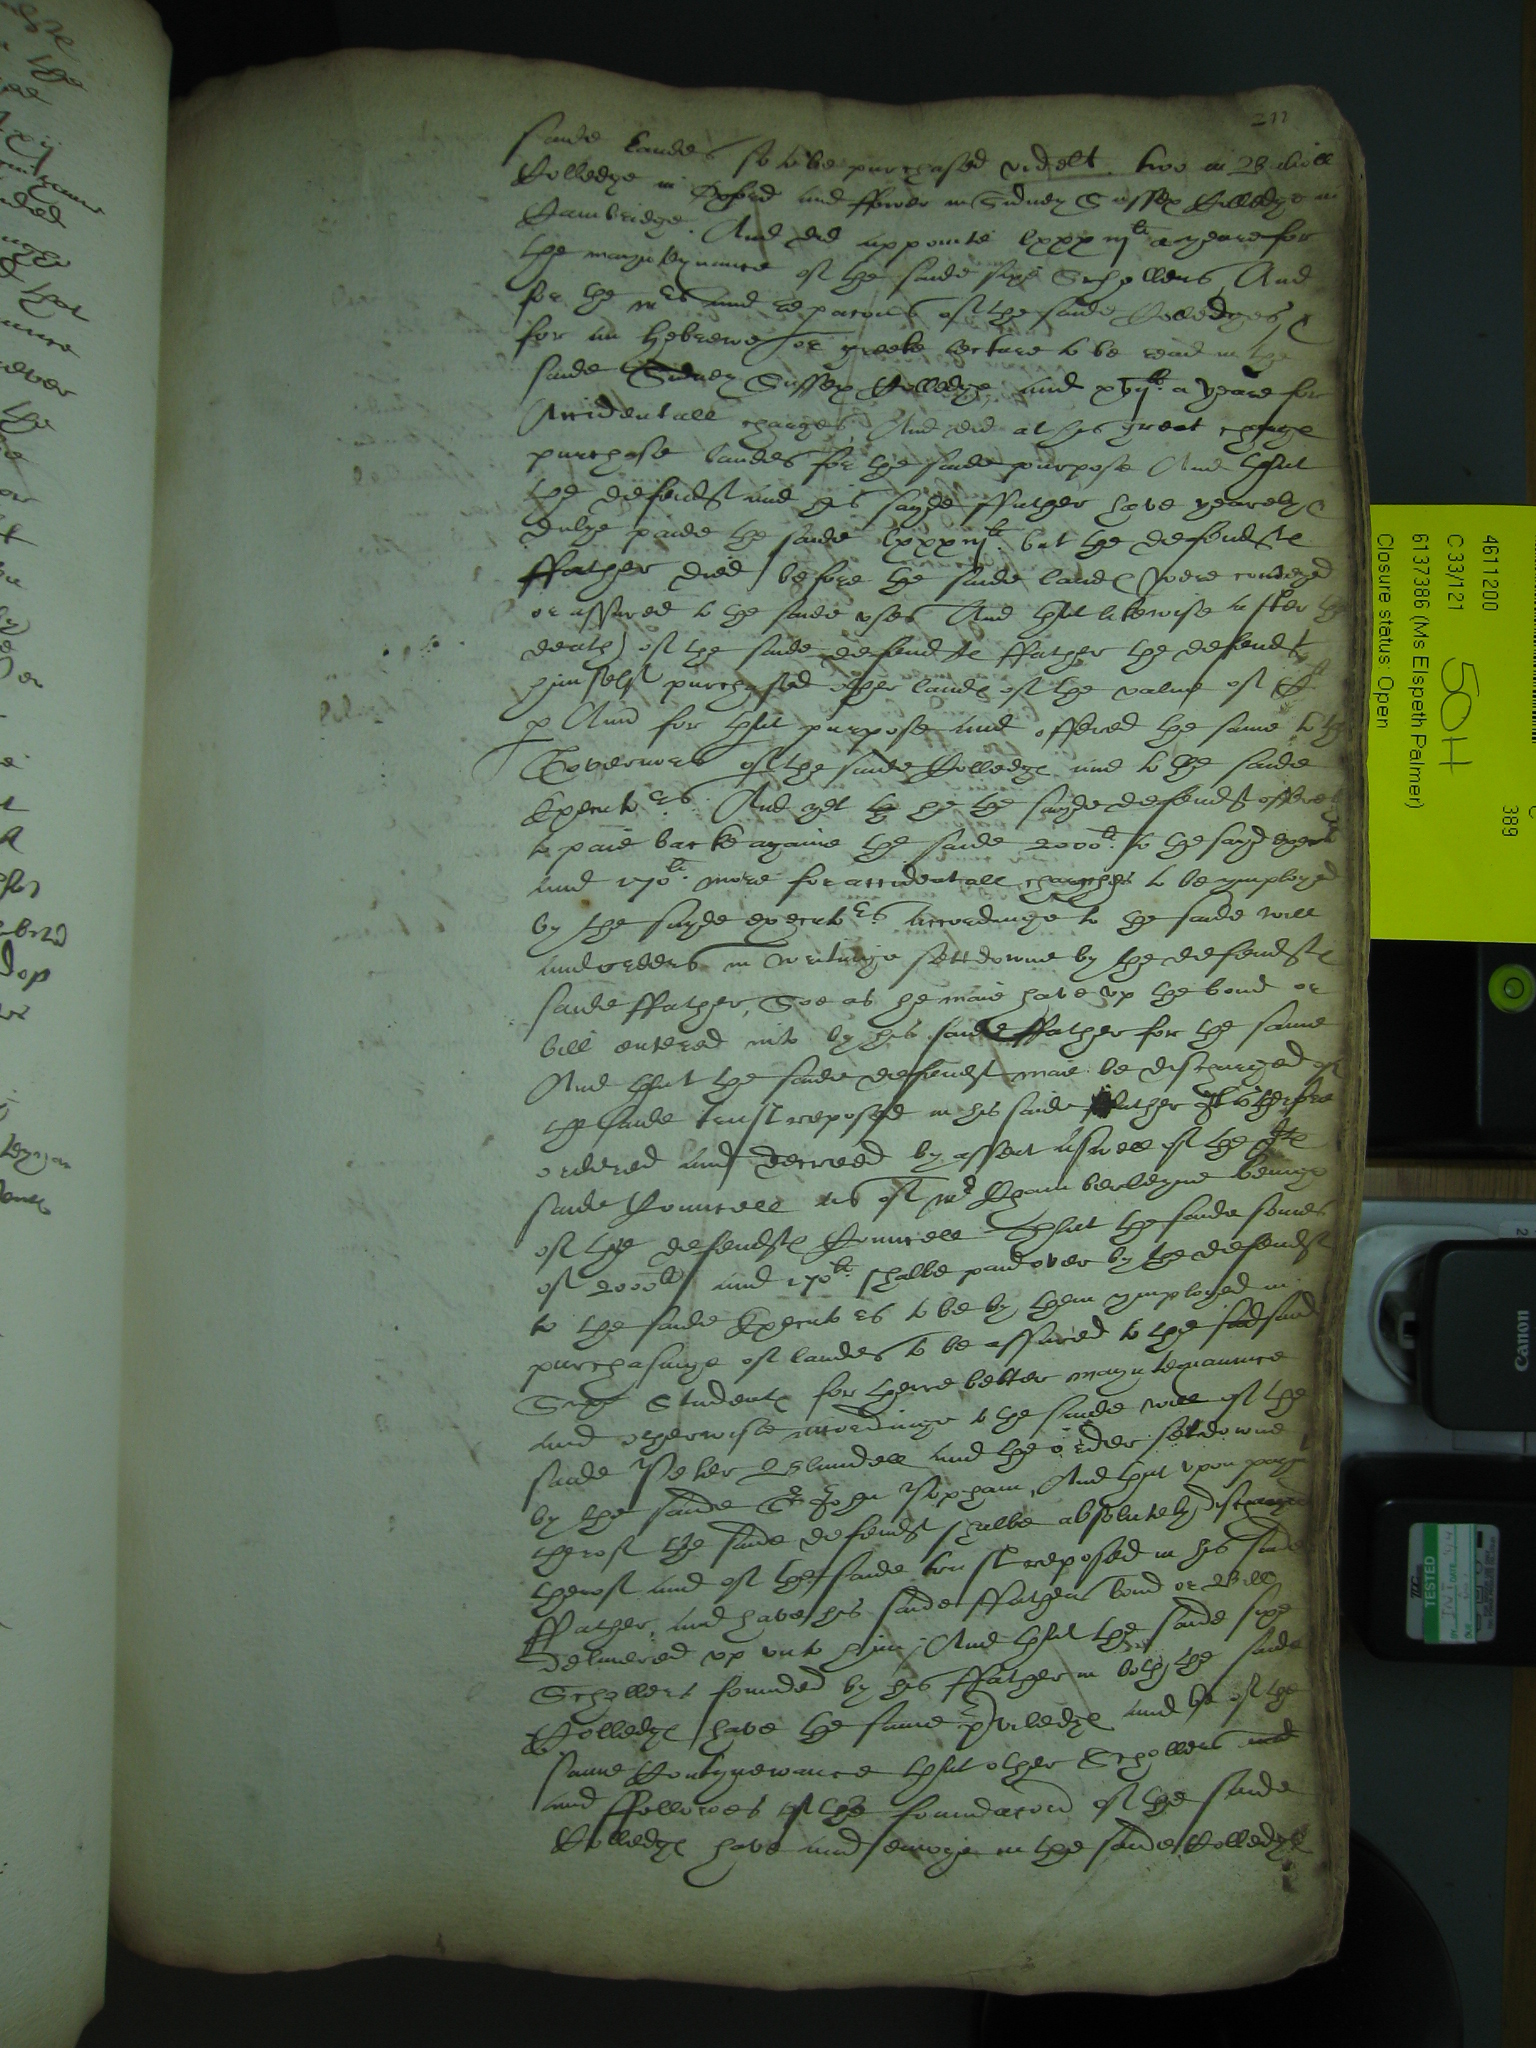 211
saide landes so to be purchased videlt. two in Balioll
Colledge in Oxford and ffower in Sidney Sussex Colledge in
Cambridge. And did appointe lxxxiijli a yeare for
the mayntenance of the saide sixe Schollers, And
for the Mrs and repacons of the saide Colledges, &
for an Hebrewe or greeke lecture to be read in the
saide Sidney Sussex Colledge, and xvijli. a yeare for
Accidentall charges, And did at his great charge
purchase landes for the saide purpose And that
the defendt and his sayde ffather have yearely &
dulye paide the saide lxxxiijli. but the defendtes
ffather died before the saide landes were conveyed
or assured to the saide uses And that likewise after the
death of the saide defendtes ffather the defendt
himself purchased other landes of the value of
p Ann for that purpose and offered the same to the
Governors of the saide Colledge and to the saide
Executors. And yet he the sayde defendt offered
to paie backe againe the saide 2000li. to the sayd
and 170li. more for accidentall charges to be ymployed
by the sayde executors accordinge to the saide will
and orders in writinge sett downe by the defendtes
saide ffather, Soe as he maie have up the bond or
bill entered into by his saide ffather for the same
And that the saide defendt maie be discharged of
the saide trust reposed in his saide ffather It is therefore
ordered and decreed by assent aswell of the
saide Councell as of Mr Chamberleyne beinge
of the defendtes Councell That the saide somes
of 2000li and 170li. shalbe paid over by the defendt
to the saide Executors to be by them ymployed in
purchasinge of landes to be assured to the said
Students for there better mayntenaunce
and otherwise accordinge to the saide will of the
saide Peter Blundell and the order set downe
by the saide Sr John Popham, And that upon
therof the saide defendt shalbe absolutely
therof and of the saide trust reposed in his saide
ffather, and have his saide ffathers bond or Bill
delivered up unto him, And that the saide sixe
Schollers founded by his ffather in both the saide
Colledges have the same priviledges and be of the
same Contynewance that other Schollers
and ffellowes of the foundacon of the saide
Colledges have and enioye in the saide Colledges
4611200
C
389
C 33/121
50H
6137386 (Ms Elspeth Palmer)
Closure status: Open
Canon
TESTED